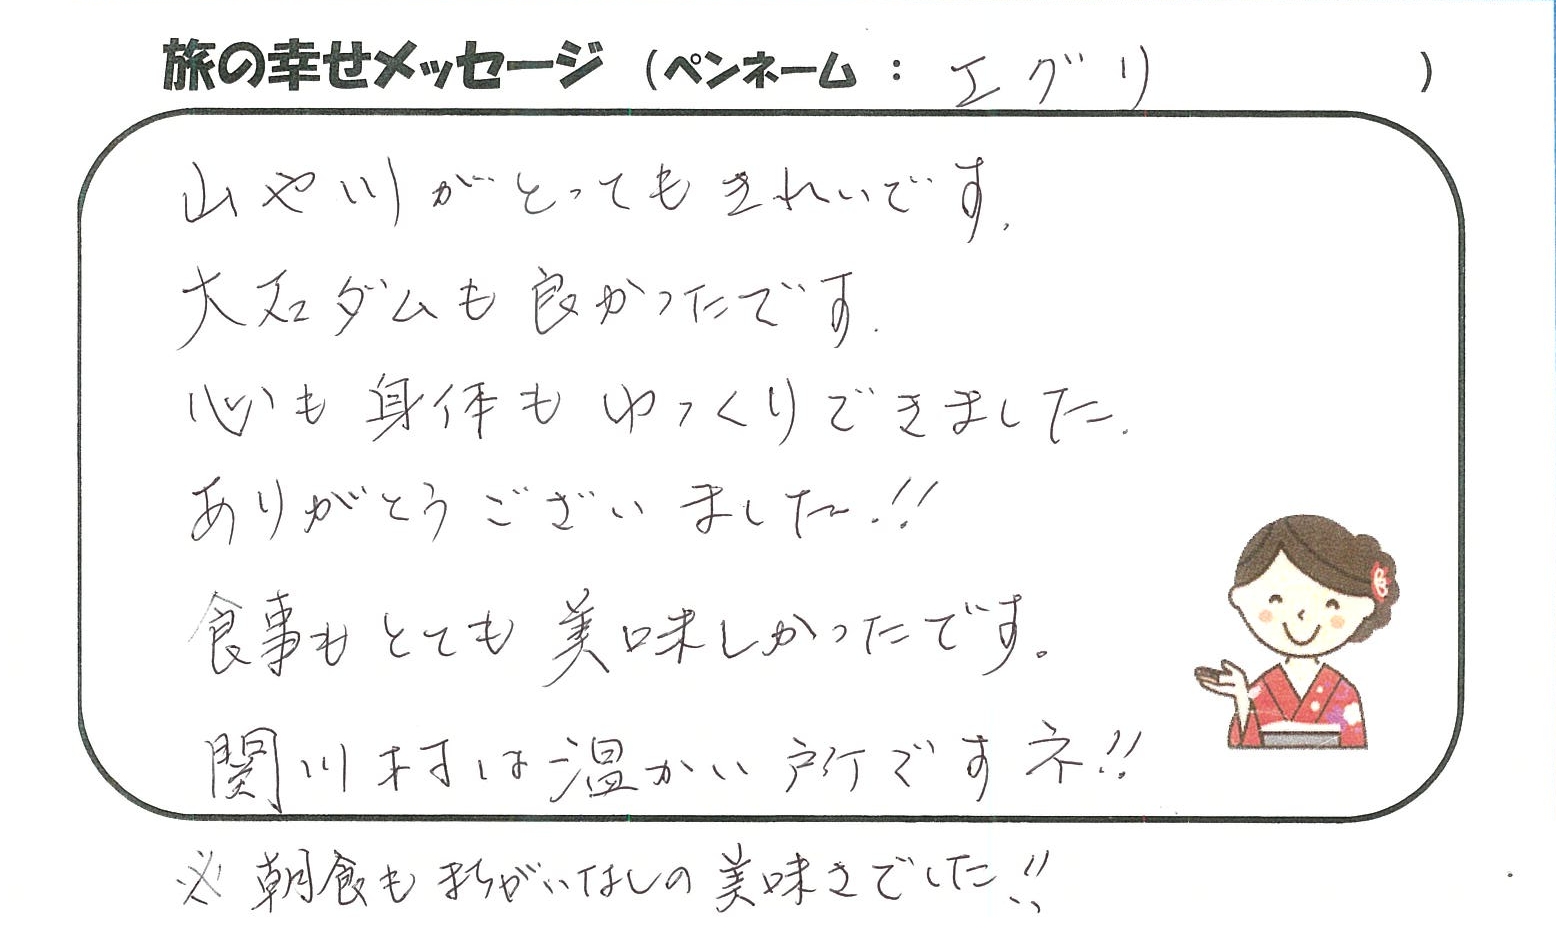 旅の幸せメッセージ (ペンネーム : エグリ )
山や川がとってもきれいです.
大石ダムも良かったです.
心も身体もゆっくりできました.
ありがとうございました.!!
食事もとても美味しかったです。
関川村は温かい所ですネ!!
※朝食もまちがいなしの美味さでした!!